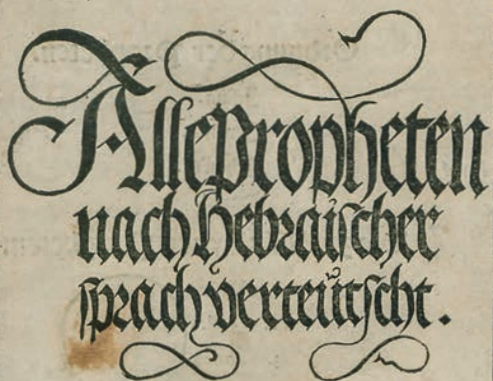 Alle Propheten
nach Hebraischer
sprach verteütscht.